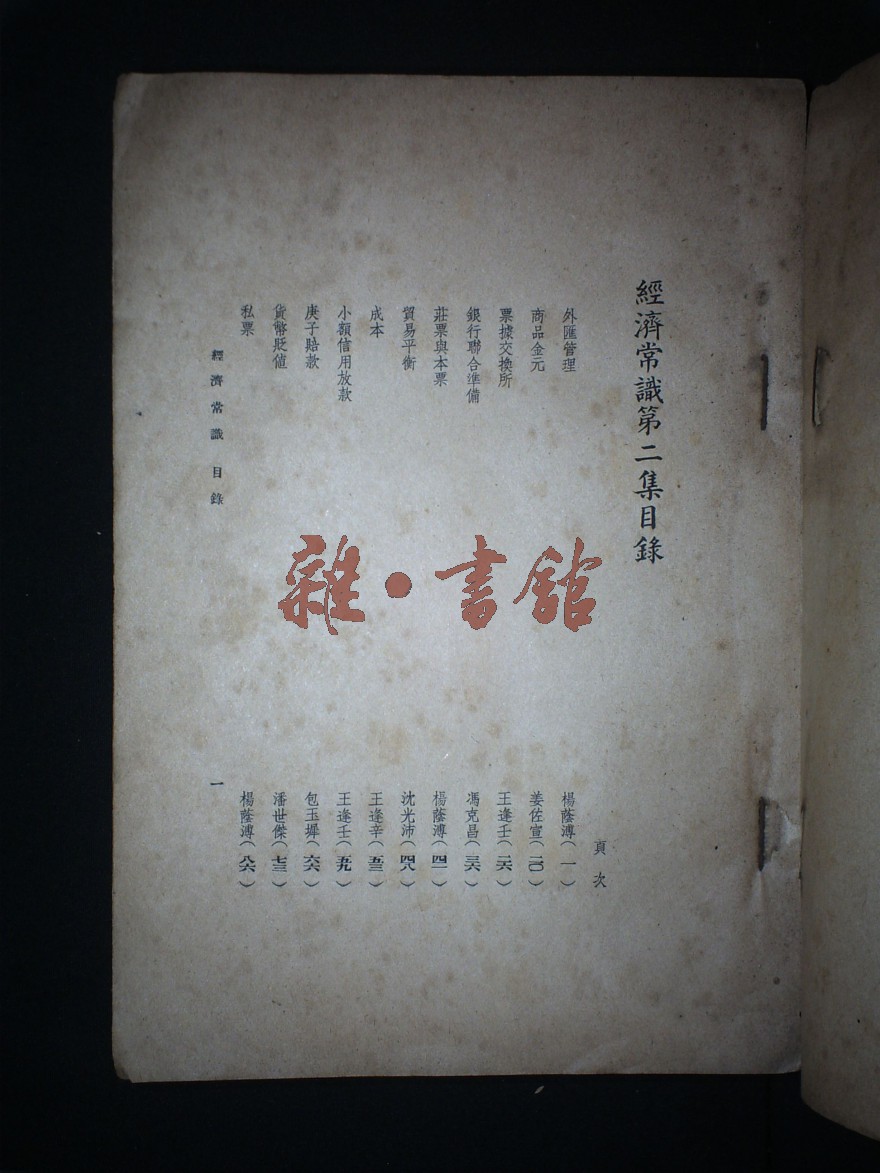 經濟常識第二集目錄
頁次
外匯管理 楊蔭溥(一)
商品金元 姜佐宣(二〇)
票據交換所 王逢壬(二六)
銀行聯合準備 馮克昌(三六)
莊票與本票 楊蔭溥(四一)
貿易平衡 沈光沛(四八)
成本 王逢辛(五三)
小額信用放款 王逢壬(五九)
庚子賠款 包玉墀(六六)
貨幣貶值 潘世傑(七三)
私票 楊蔭溥(八六)
經濟常識 目錄
一
雜·書館